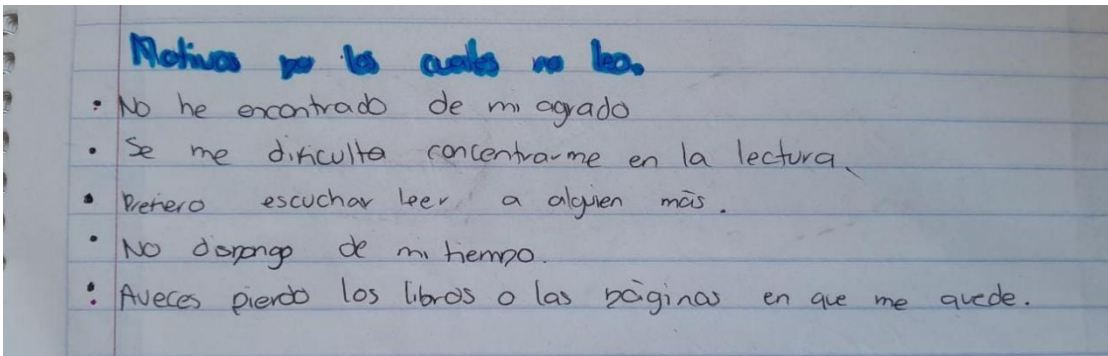 Motivos por los cuales no leo.
• No he encontrado de mi agrado
• Se me dificulta concentrarme en la lectura.
• Prefiero escuchar leer a alguien más.
• No dispongo de mi tiempo.
• Aveces pierdo los libros o las páginas en que me quede.